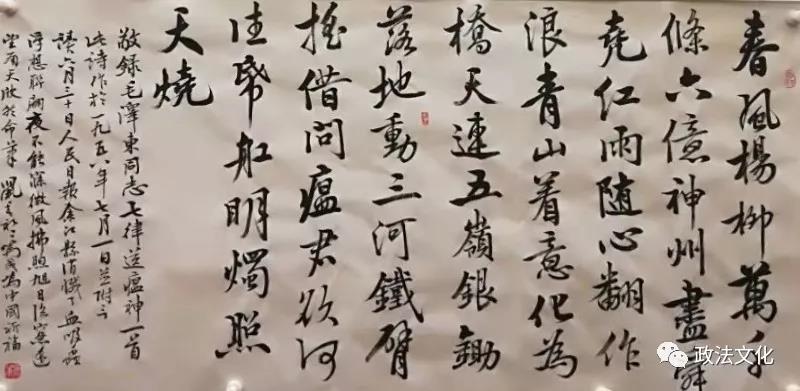 春風楊柳萬千
條六億神州盡舜
堯紅雨随心翻作
浪青山着意化為
橋天連五嶺銀鋤
落地動三河鐵臂
摇借問瘟君欲何
往帋船明燭照
天燒
敬錄毛澤東同志七律送瘟神一首
此詩作於一九五六年七月一日並附言
讀六月三十日人民日報余江縣消滅了血吸蟲
浮想聯翩夜不能寐微风拂煦旭日临窓遥
望南天欣然命筆 為中國祈福
政法文化